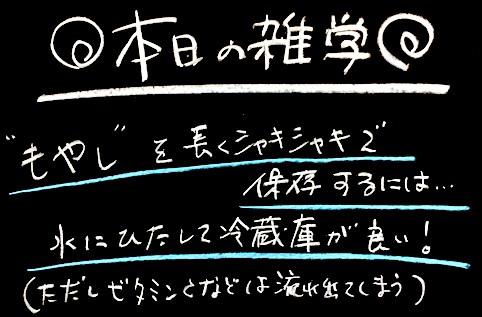 本日の雑学
"もやし"を長くシャキシャキで
保存するには…
水にひたして冷蔵庫が良い!
(ただしビタミンCなどは流れ出てしまう)